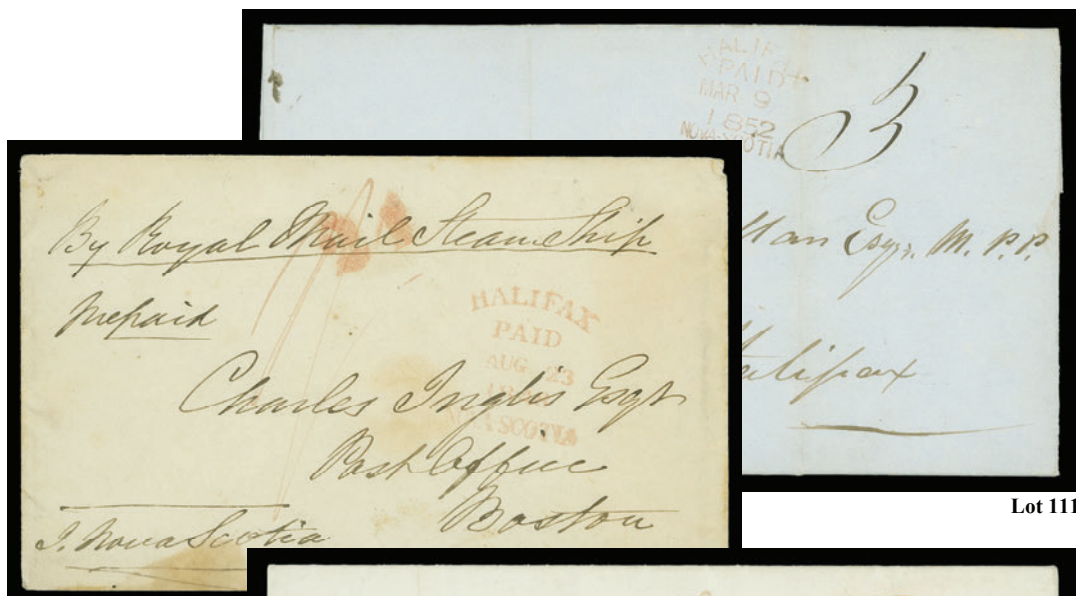 PAID
MAR 9
1852
NOVA-SCOTIA
3
Esqr. M. P. P.
Halifax
Lot 111
By Royal Mail Steam Ship
Prepaid
HALIFAX
PAID
AUG 23
SCOTIA
Charles Inglis Esqr
Post Office
Boston
Nova Scotia